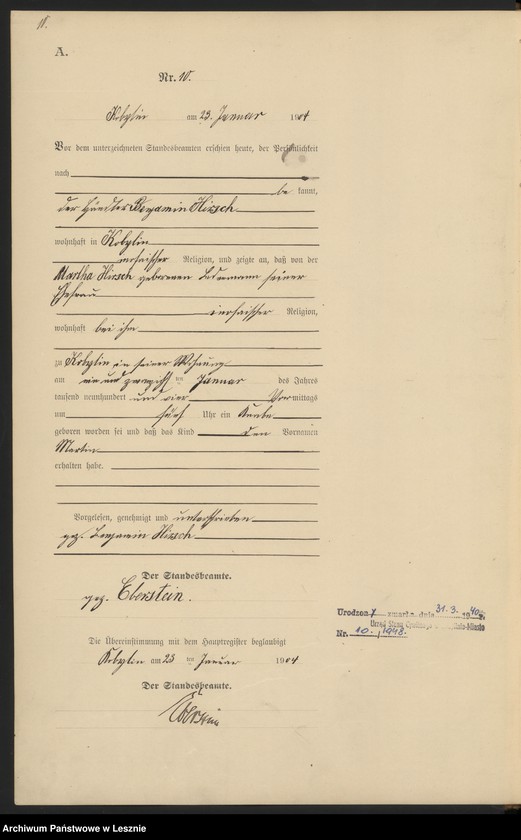 10.
A.
Nr. 10.
Kobylin am 23. Januar 1904
Vor dem unterzeichneten Standesbeamten erschien heute, der Persönlichkeit
nach
be kannt,
der Händler Benjamin Hirsch
wohnhaft in Kobylin
mosaischer Religion, und zeigte an, daß von der
Martha Hirsch geborenen seiner
Ehefrau
mosaischer Religion,
wohnhaft bei ihm
zu Kobylin in seiner Wohnung
am ein und zwanzigsten Januar des Jahres
tausend neunhundert und vier Vormittags
um fünf Uhr ein Knabe
geboren worden sei und daß das Kind den Vornamen
Martin
erhalten habe.
Vorgelesen, genehmigt und unterschrieben
gez. Benjamin Hirsch
Der Standesbeamte.
gez. Eberstein.
Die Übereinstimmung mit dem Hauptregister beglaubigt
Kobylin am 23 ten Januar 1904
Der Standesbeamte.
Eberstein
Urodzon dnia 31.3. 1940 r.
Urząd Stanu
Nr. 10./1948.
Archiwum Państwowe w Lesznie